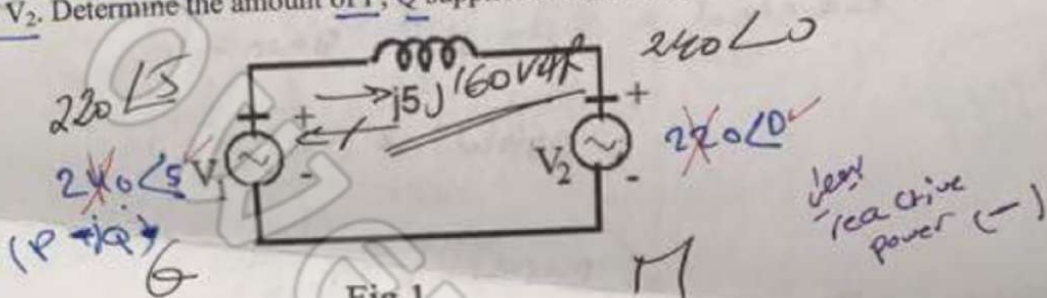 V₂. Determine the amount of P, Q
220∠5
240∠0
j5
160 VAR
+
+
240∠5
V₁
-
V₂
-
220∠0
reactive
power (-)
(P + jQ)
G
M
Fig 1